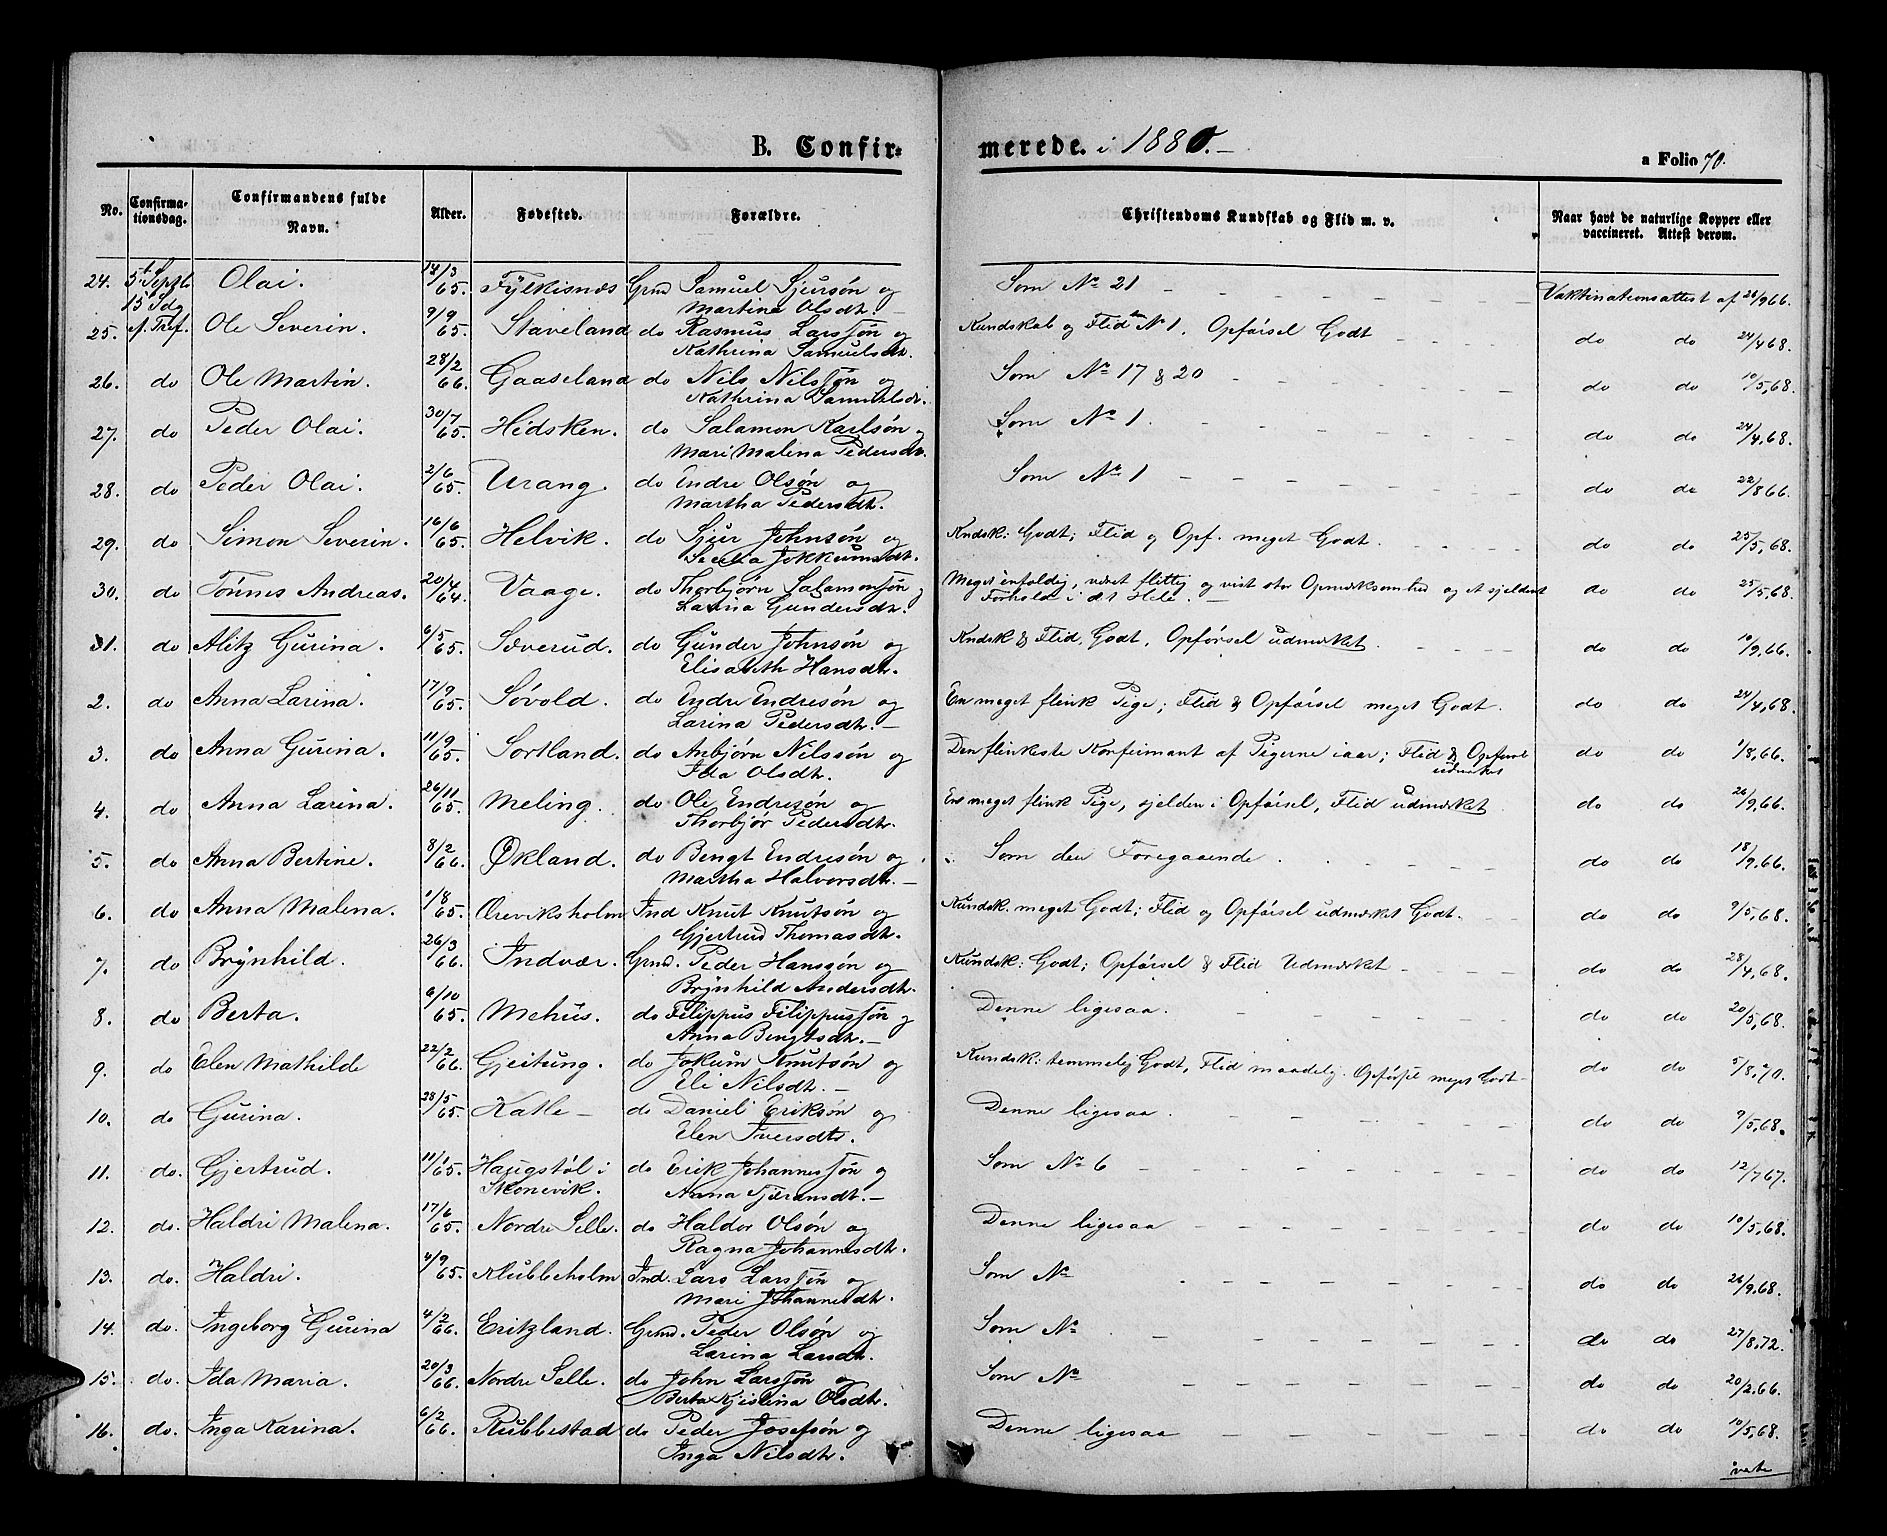 B. Confir-
merede. i 1880.
a Folio 70.
No.
Confirma-
tionsdag.
Confirmandens fulde
Navn.
Alder.
Fødested.
Forældre.
Christendoms Kundskab og Flid m. v.
Naar havt de naturlige Kopper eller
vaccineret. Attest derom.
24. 5t Septb Olai. 14/3 65. Fylkisnes Grmd Samuel Sjursøn og Som No 21 Vaktinationsattest af 20/9 66.
15 Sdg Martina Olsdt.
25. e. Tref. Ole Severin. 9/9 65. Staveland do Rasmus Larssøn og Kundskab og Flid No 1. Opførsel Godt do do 24/4 68.
Kathrina Samuelsdt.
26. do Ole Martin. 28/2 66. Gaaseland do Nils Nilssøn og Som No 17 & 20 do do 10/5, 68.
Kathrina Samuelsdt.
27. do Peder Olai. 30/7 65. Hidsken. do Salamon Karlsøn og Som No 1. do do 24/4, 68.
Mari Malena Pedersdt.
28. do Peder Olai. 2/6 65. Urang. do Endre Olsøn og Som No 1 do do 22/8 66.
Martha Pedersdt.
29. do Simon Severin. 16/6 65. Helvik. do Sjur Johnsøn og Kndsk: Godt; Flid og Opf. meget Godt. do do 25/5, 68.
Jokkumsdt.
30. do Tønnes Andreas. 20/4 64. Vaage. do Thorbjørn Salamonsøn og Meget enfoldig, været flittig og vist stor Opmærksomhed og et sjeldent do do 25/5, 68.
Larina Gundersdt. Forhold i det Hele.
31. do Alitz Gurina. 6/5 65. Sæverud. do Gunder Johnsøn og Kndsk & Flid, Godt, Opførsel udmærket. do do 10/9, 66.
Elisabeth Hansdt.
2. do Anna Larina. 17/9 65. Søvold. do Endre Endresøn og En meget flink Pige; Flid & Opførsel meget Godt. do do 24/4, 68.
Larina Pedersdt.
3. do Anna Gurina. 11/9 65. Sortland. do Anbjørn Nilssøn og Den flinkeste Konfirmant af Pigerne iaar; Flid & Opførsel do do 1/8, 66.
Ida Olsdt. udmærket
4. do Anna Larina. 26/11 65. Meling. do Ole Endresøn og En meget flink Pige, sjelden i Opførsel, Flid udmærket do do 26/9, 66.
Thorbjør Pedersdt.
5. do Anna Bertine. 8/2 66. Økland. do Bengt Endresøn og Som den Foregaaende. do do 18/9, 66.
Martha Halvorsdt.
6. do Anna Malena. 1/8 65. Øreviksholm Ind Knut Knutsøn og Kundsk. meget Godt; Flid og Opførsel udmærket Godt. do do 9/5, 68.
Gjertrud Thomasdt.
7. do Brynhild. 26/3 66. Indvær. Grmd. Peder Hanssøn og Kundsk: Godt; Opførsel & Flid Udmærket do do 28/4, 68.
Brynhild Andersdt.
8. do Berta. 6/10 65. Mehus. do Filippus Filippussøn og Denne ligesaa. do do 20/5, 68.
Anna Bengtsdt.
9. do Elen Mathilde 22/2 66. Gjeitung. do Jokum Knutsøn og Kundsk: temmelig Godt, Flid maadelig. Opførsel meget Godt do do 5/8, 70.
Eli Nilsdt.
10. do Gurina. 28/5 65. Katle do Daniel Eriksøn og Denne ligesaa. do do 9/5, 68.
Elen Iversdt.
11. do. Gjertrud. 11/1 65. Haugstøl i do Erik Johannessøn og Som No 6 do do 12/7 67.
Skonevik. Anna Tjæransdt.
12. do. Haldri Malena. 17/6 65. Nordre Selle. do Haldor Olsøn og Denne ligesaa do do 10/5, 68.
Ragna Johannesdt.
13. do. Haldri. 4/9 65. Klubbeholm Ind. Lars Larssøn og Som No do do 26/9, 68.
Mari Johannesdt.
14. do. Ingeborg Gurina 4/2 66. Eritzland. Grmd. Peder Olsøn og Som No do do 27/8, 72.
Larina Larsdt.
15. do. Ida Maria. 20/3 66. Nordre Selle. do John Larssøn og Som No do do 20/2, 66.
Berta Kjistina Olsdt.
16. do. Inga Karina. 6/2 66. Rubbestad do Peder Josefsøn og Denne ligesaa do do 10/5, 68.
Inga Nilsdt.